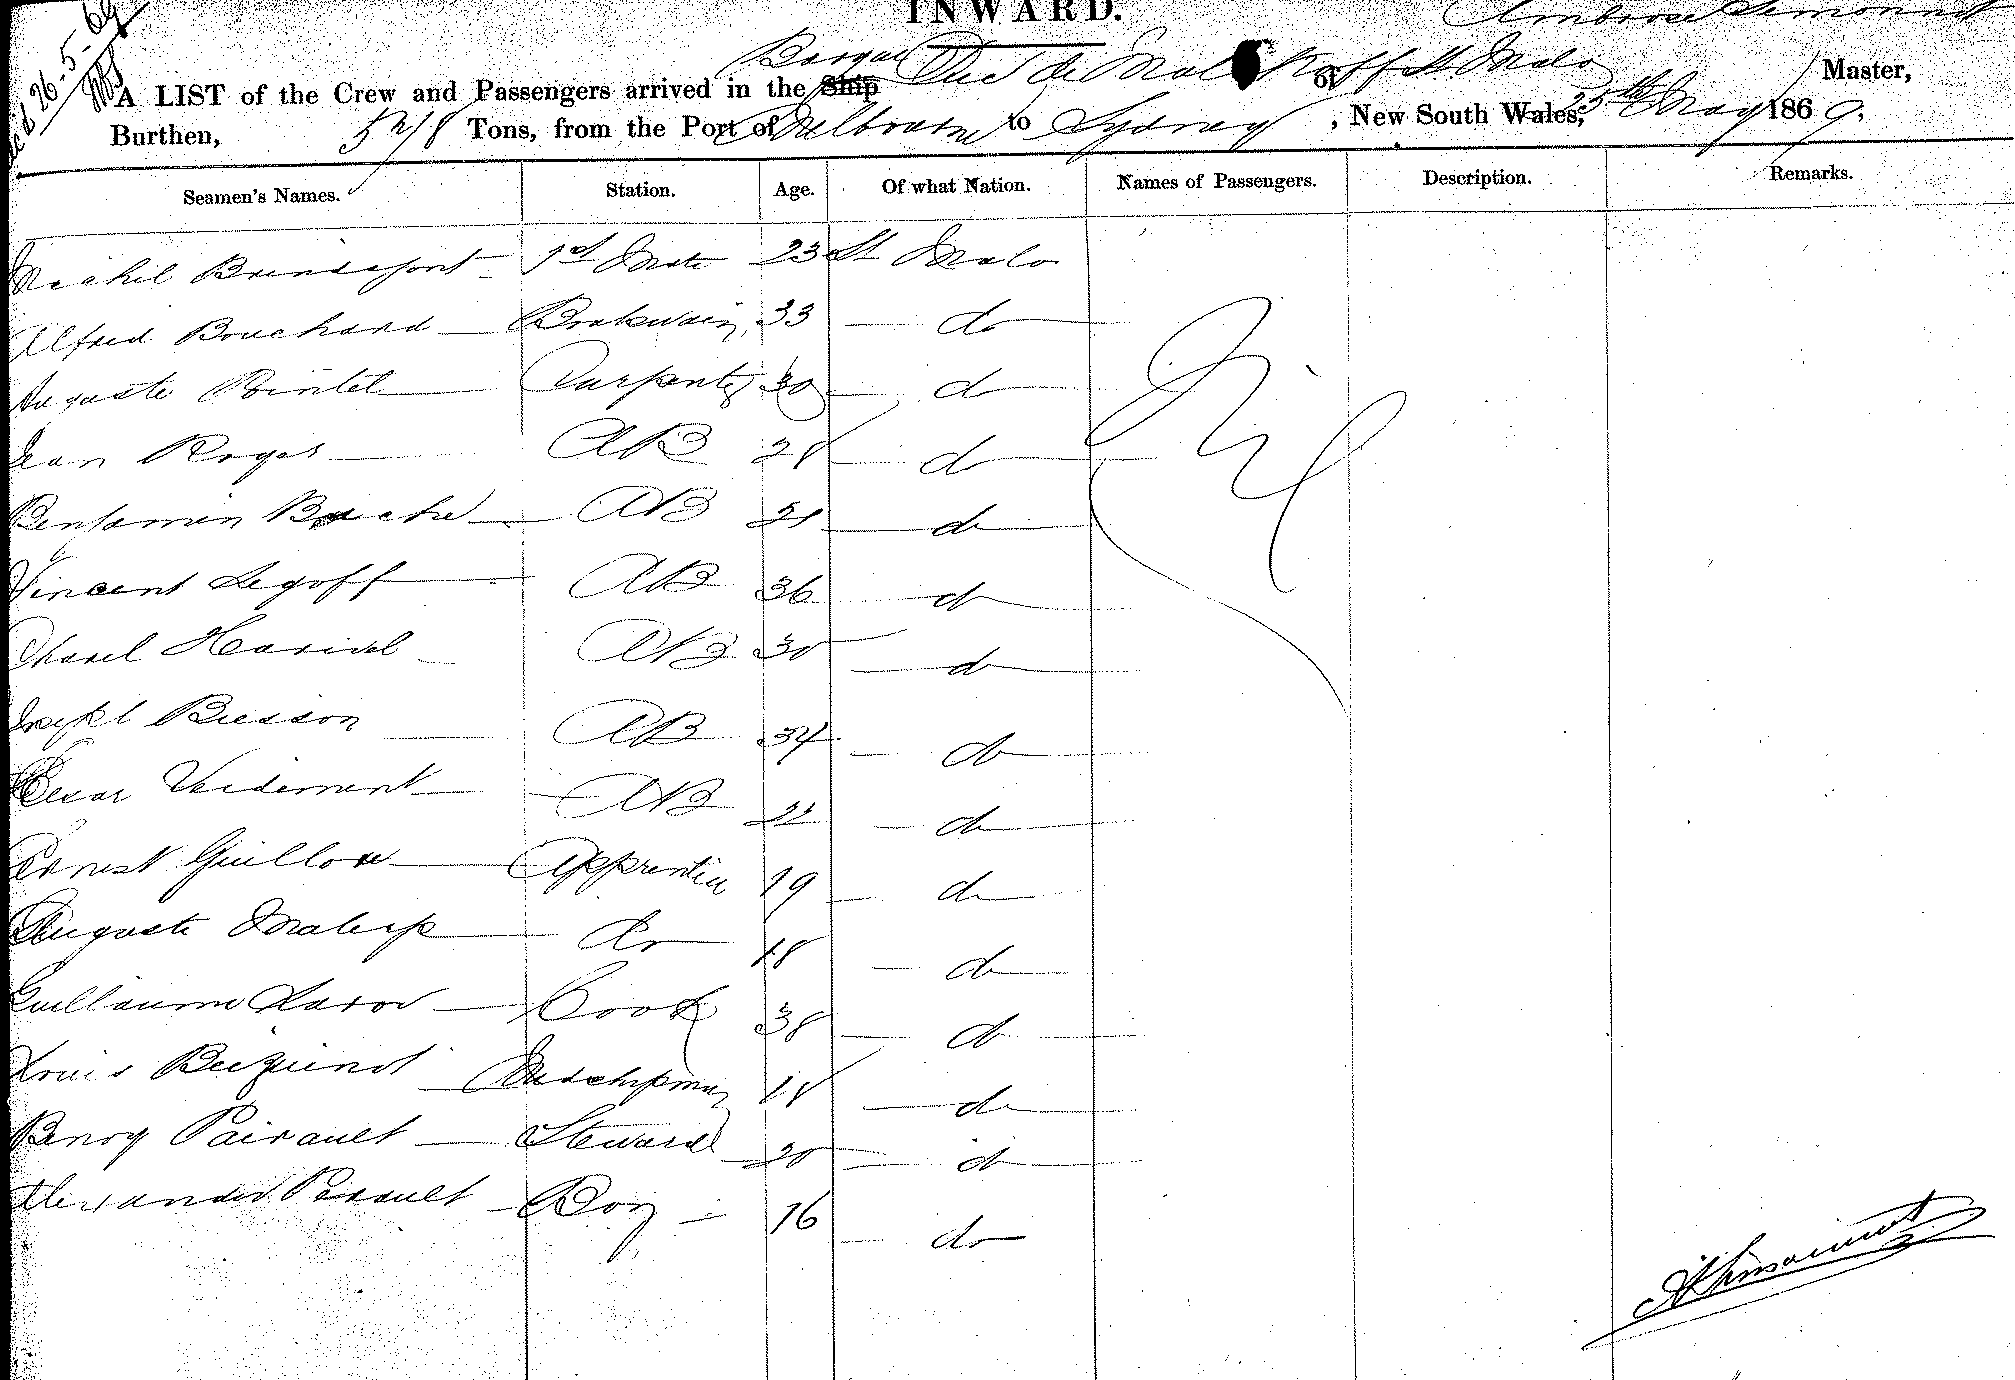 26-5-69
INWARD.
Ambroise
Barque Duc de Malakoff St Malo
A LIST of the Crew and Passengers arrived in the Ship of Master,
Burthen, 548 Tons, from the Port of Melbourne to Sydney, New South Wales, 25th May 1869.
Seamen's Names. Station. Age. Of what Nation. Names of Passengers. Description. Remarks.
Michel 1st Mate 23 St Malo
Alfred Bouchard 33 do
Auguste Pointel Carpenter 30 do
Nil
Jean Roger AB 28 do
Benjamin AB do
Vincent Legoff AB 36 do
Charel Harivel AB 30 do
Joseph Besson AB 34 do
Cesar AB 22 do
Ernest Guillou Apprentice 19 do
Auguste Do 18 do
Guillaume Cook 38 do
Louis 18 do
Benoy Pairault Steward 20 do
Alexander Perault Boy 16 do